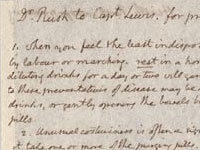 Dr. Rush to Capt. Lewis. for pr
1. when you feel the least indispos
by labour or marching. rest in a hor
diluting drinks for a day or two will gen
to these preventatives of disease may be
drinks, or gently opening the bowels b
pills.
2. Unusual costiveness is often a sign
it take one or more of the purging pills.